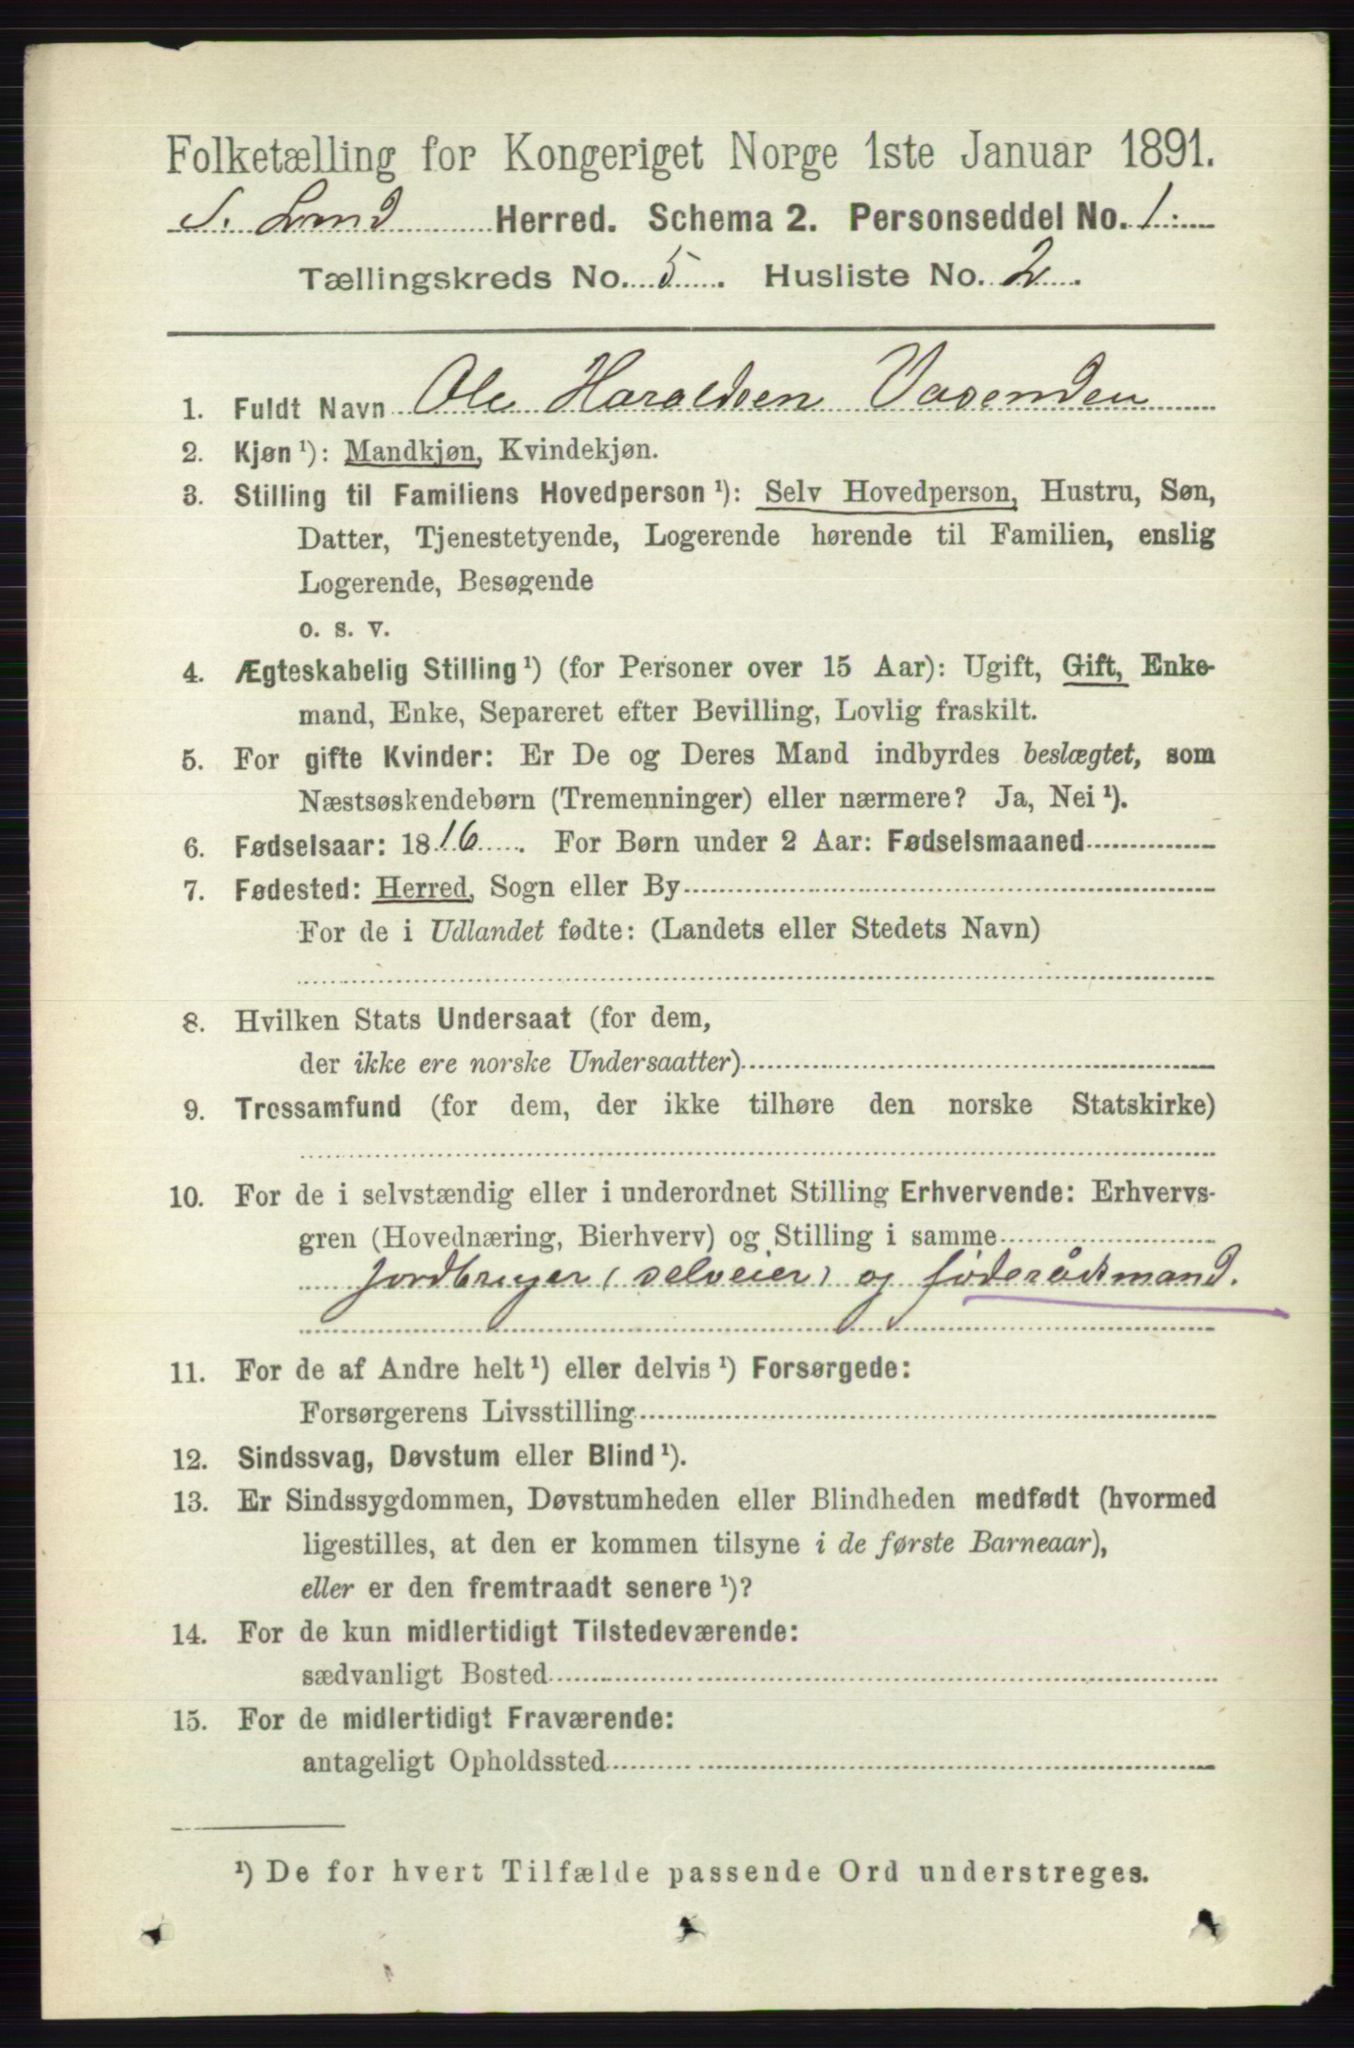 Folketælling for Kongeriget Norge 1ste Januar 1891.
S. Land Herred. Schema 2. Personseddel No. 1.
Tællingskreds No. 5. Husliste No. 2.
1. Fuldt Navn Ole Haraldsen Vasenden
2. Kjøn¹): Mandkjøn, Kvindekjøn.
3. Stilling til Familiens Hovedperson¹): Selv Hovedperson, Hustru, Søn,
Datter, Tjenestetyende, Logerende hørende til Familien, enslig
Logerende, Besøgende
o. s. v.
4. Ægteskabelig Stilling¹) (for Personer over 15 Aar): Ugift, Gift, Enke-
mand, Enke, Separeret efter Bevilling, Lovlig fraskilt.
5. For gifte Kvinder: Er De og Deres Mand indbyrdes beslægtet, som
Næstsøskendebørn (Tremenninger) eller nærmere? Ja, Nei¹).
6. Fødselsaar: 1816. For Børn under 2 Aar: Fødselsmaaned
7. Fødested: Herred, Sogn eller By
For de i Udlandet fødte: (Landets eller Stedets Navn)
8. Hvilken Stats Undersaat (for dem,
der ikke ere norske Undersaatter)
9. Trossamfund (for dem, der ikke tilhøre den norske Statskirke)
10. For de i selvstændig eller i underordnet Stilling Erhvervende: Erhvervs-
gren (Hovednæring, Bierhverv) og Stilling i samme
jordbruger (selveier) og föderådsmand.
11. For de af Andre helt¹) eller delvis¹) Forsørgede:
Forsørgerens Livsstilling
12. Sindssvag, Døvstum eller Blind¹).
13. Er Sindssygdommen, Døvstumheden eller Blindheden medfødt (hvormed
ligestilles, at den er kommen tilsyne i de første Barneaar),
eller er den fremtraadt senere¹)?
14. For de kun midlertidigt Tilstedeværende:
sædvanligt Bosted
15. For de midlertidigt Fraværende:
antageligt Opholdssted
¹) De for hvert Tilfælde passende Ord understreges.